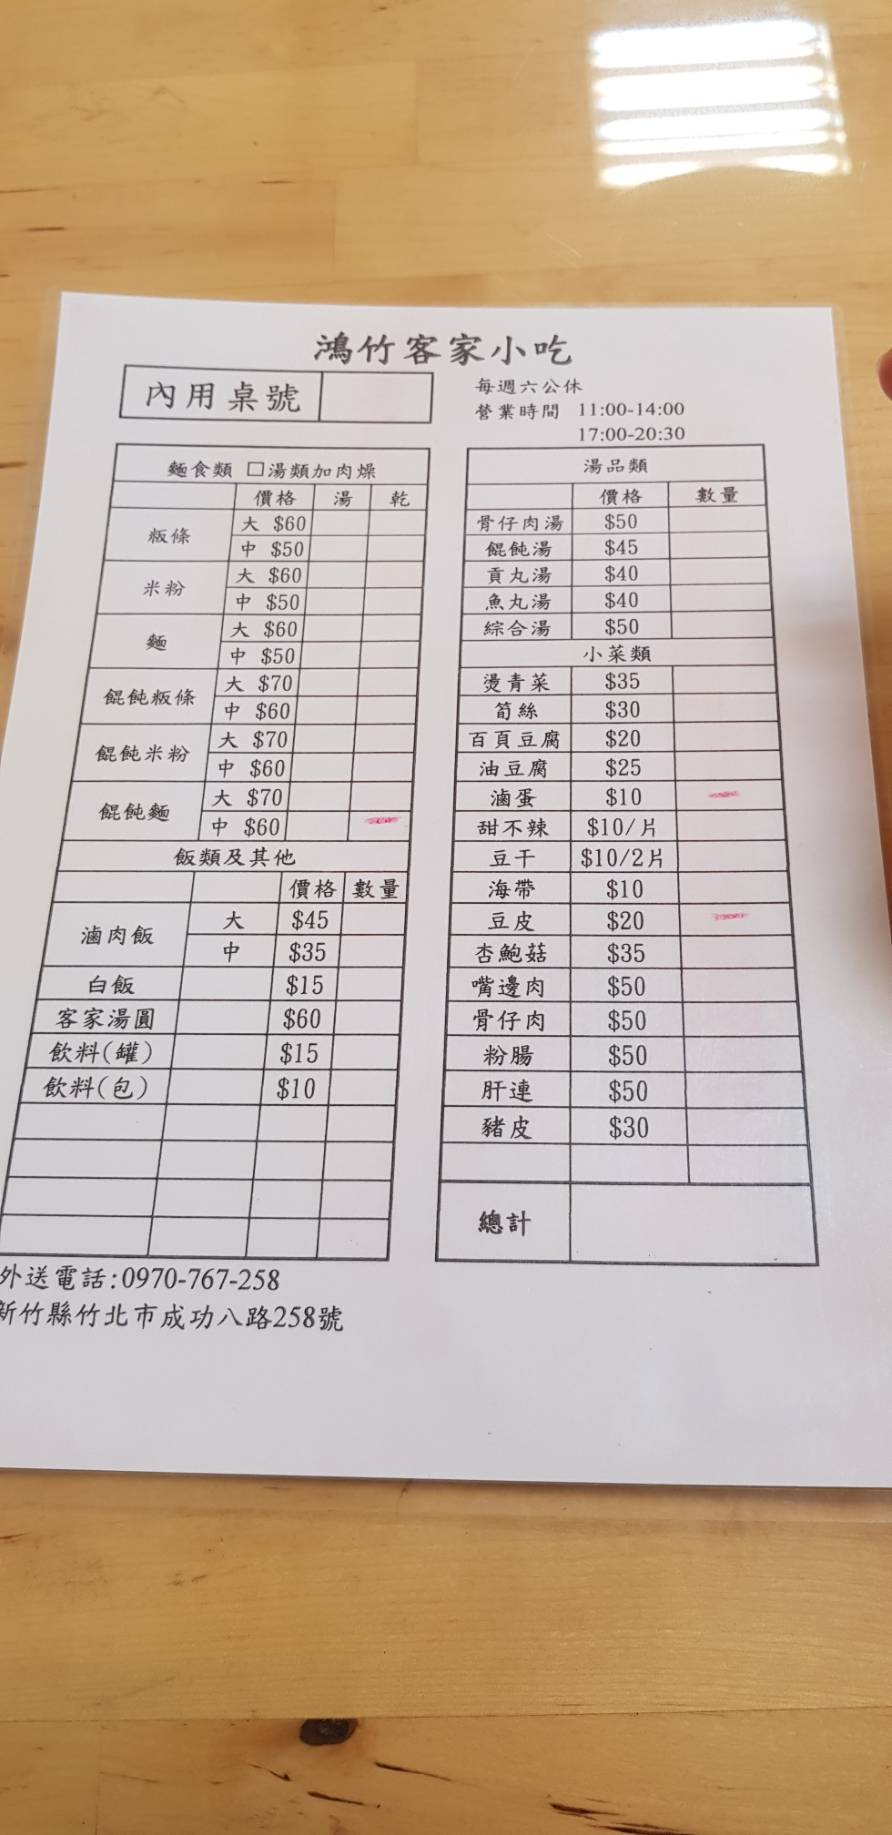 鴻竹客家小吃
內用桌號
每週六公休
營業時間 11:00-14:00
17:00-20:30
麵食類 □湯類加肉燥
價格 湯 乾
粄條 大 $60
中 $50
米粉 大 $60
中 $50
麵 大 $60
中 $50
餛飩粄條 大 $70
中 $60
餛飩米粉 大 $70
中 $60
餛飩麵 大 $70
中 $60
飯類及其他
價格 數量
滷肉飯 大 $45
中 $35
白飯 $15
客家湯圓 $60
飲料(罐) $15
飲料(包) $10
湯品類
價格 數量
骨仔肉湯 $50
餛飩湯 $45
貢丸湯 $40
魚丸湯 $40
綜合湯 $50
小菜類
燙青菜 $35
筍絲 $30
百頁豆腐 $20
油豆腐 $25
滷蛋 $10
甜不辣 $10/片
豆干 $10/2片
海帶 $10
豆皮 $20
杏鮑菇 $35
嘴邊肉 $50
骨仔肉 $50
粉腸 $50
肝連 $50
豬皮 $30
總計
外送電話:0970-767-258
新竹縣竹北市成功八路258號